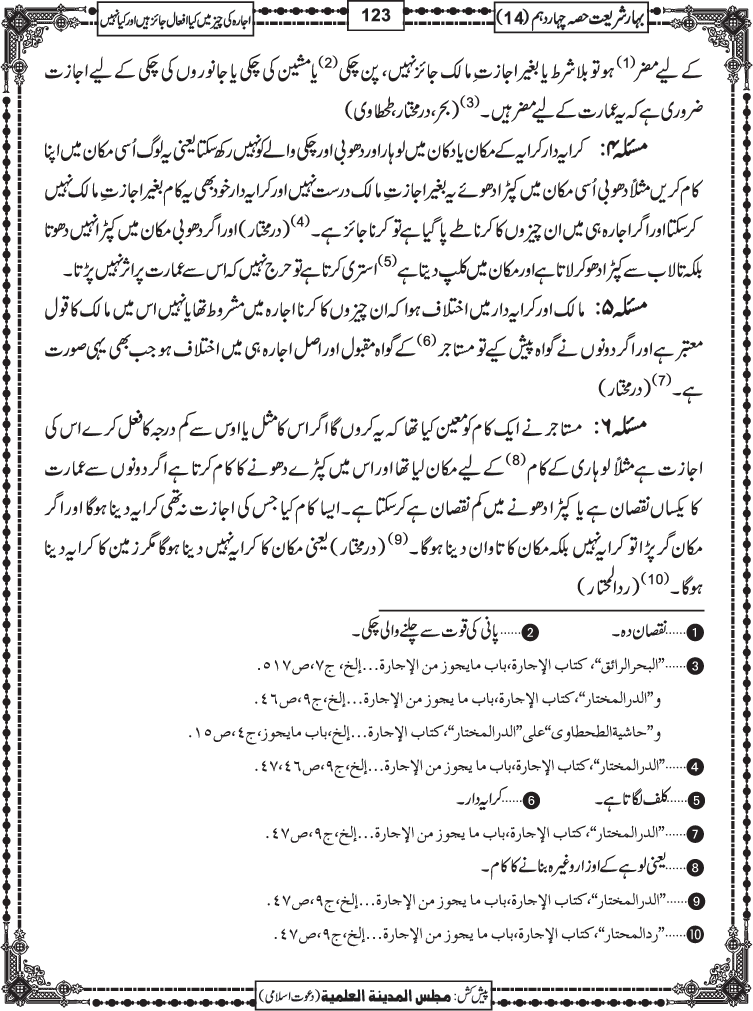 بہارِ شریعت حصہ چہاردہم (14)
123
اجارہ کی چیز میں کیا افعال جائز ہیں اور کیا نہیں
کے لیے مضر(1) ہو تو بلا شرط یا بغیر اجازتِ مالک جائز نہیں، پن چکی(2) یا مشین کی چکی یا جانوروں کی چکی کے لیے اجازت
ضروری ہے کہ یہ عمارت کے لیے مضر ہیں۔(3) (بحر، درمختار، طحطاوی)
مسئلہ ۴: کرایہ دار کرایہ کے مکان یا دکان میں لوہار اور دھوبی اور چکی والے کو نہیں رکھ سکتا یعنی یہ لوگ اُسی مکان میں اپنا
کام کریں مثلاً دھوبی اُسی مکان میں کپڑا دھوئے یہ بغیر اجازتِ مالک درست نہیں اور کرایہ دار خود بھی یہ کام بغیر اجازتِ مالک نہیں
کر سکتا اور اگر اجارہ ہی میں ان چیزوں کا کرنا طے پا گیا ہے تو کرنا جائز ہے۔(4) (درمختار) اور اگر دھوبی مکان میں کپڑا نہیں دھوتا
بلکہ تالاب سے کپڑا دھو کر لاتا ہے اور مکان میں کلپ دیتا ہے(5) استری کرتا ہے تو حرج نہیں کہ اس سے عمارت پر اثر نہیں پڑتا۔
مسئلہ ۵: مالک اور کرایہ دار میں اختلاف ہوا کہ ان چیزوں کا کرنا اجارہ میں مشروط تھا یا نہیں اس میں مالک کا قول
معتبر ہے اور اگر دونوں نے گواہ پیش کیے تو مستاجر(6) کے گواہ مقبول اور اصل اجارہ ہی میں اختلاف ہو جب بھی یہی صورت
ہے۔(7) (درمختار)
مسئلہ ۶: مستاجر نے ایک کام کو معین کیا تھا کہ یہ کروں گا اگر اس کا مثل یا اوس سے کم درجہ کا فعل کرے اس کی
اجازت ہے مثلاً لوہاری کے کام(8) کے لیے مکان لیا تھا اور اس میں کپڑے دھونے کا کام کرتا ہے اگر دونوں سے عمارت
کا یکساں نقصان ہے یا کپڑا دھونے میں کم نقصان ہے کر سکتا ہے۔ ایسا کام کیا جس کی اجازت نہ تھی کرایہ دینا ہوگا اور اگر
مکان گر پڑا تو کرایہ نہیں بلکہ مکان کا تاوان دینا ہوگا۔(9) (درمختار) یعنی مکان کا کرایہ نہیں دینا ہوگا مگر زمین کا کرایہ دینا
ہوگا۔(10) (ردالمحتار)
1......نقصان دہ۔ 2......پانی کی قوت سے چلنے والی چکی۔
3......"البحرالرائق"، كتاب الإجارة،باب مايجوز من الإجارة...إلخ، ج٧،ص٥١٧.
و"الدرالمختار"، كتاب الإجارة،باب ما يجوز من الإجارة...إلخ،ج٩،ص٤٦.
و"حاشيةالطحطاوى"على"الدرالمختار"،كتاب الإجارة...إلخ،باب مايجوز،ج٤،ص١٥.
4......"الدرالمختار"، كتاب الإجارة،باب ما يجوز من الإجارة...إلخ،ج٩،ص٤٦،٤٧.
5......کلف لگاتا ہے۔ 6......کرایہ دار۔
7......"الدرالمختار"، كتاب الإجارة،باب ما يجوز من الإجارة...إلخ،ج٩،ص٤٧.
8......یعنی لوہے کے اوزار وغیرہ بنانے کا کام۔
9......"الدرالمختار"، كتاب الإجارة،باب ما يجوز من الإجارة...إلخ،ج٩،ص٤٧.
10......"ردالمحتار"، كتاب الإجارة،باب ما يجوز من الإجارة...إلخ،ج٩،ص٤٧.
پیش کش: مجلس المدينة العلمية (دعوت اسلامی)